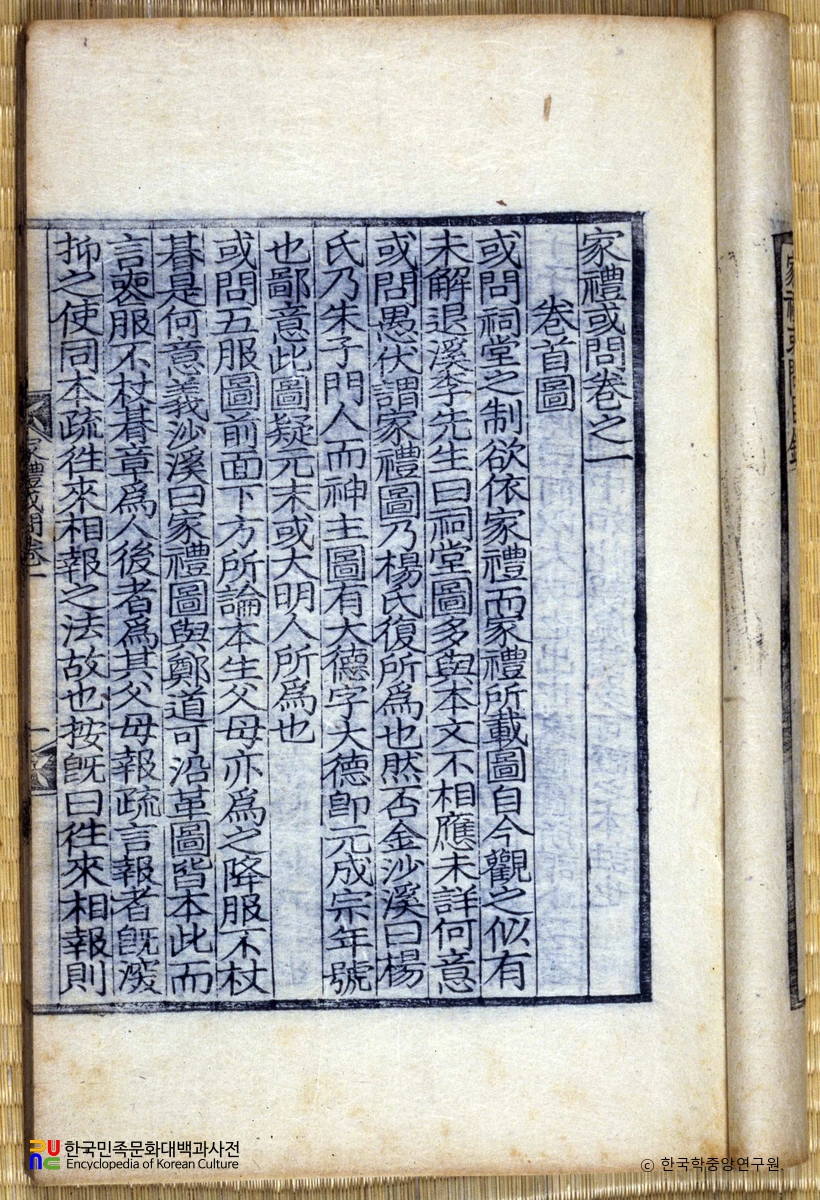 家禮或問卷之一
卷首圖
或問祠堂之制欲依家禮而家禮所載圖自今觀之似有
未解退溪李先生曰祠堂圖多與本文不相應未詳何意
或問愚伏謂家禮圖乃楊氏復所爲也然否金沙溪曰楊
氏乃朱子門人而神主圖有大德字大德卽元成宗年號
也鄙意此圖疑元末或大明人所爲也
或問五服圖前面下方所論本生父母亦爲之降服不杖
朞是何意義沙溪曰家禮圖與鄭道可沿革圖皆本此而
言喪服不杖朞章爲人後者爲其父母報疏言報者旣深
抑之使同本疏徃來相報之法故也按旣曰徃來相報則
家禮或問卷一
一
한국민족문화대백과사전
Encyclopedia of Korean Culture
© 한국학중앙연구원